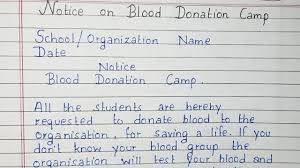 Notice on Blood Donation Camp
School/Organization Name
Date
Notice
Blood Donation Camp.
All the students are hereby
requested to donate blood to the
organisation, for saving a life. If you
don't know your blood group the
organisation will test your blood and